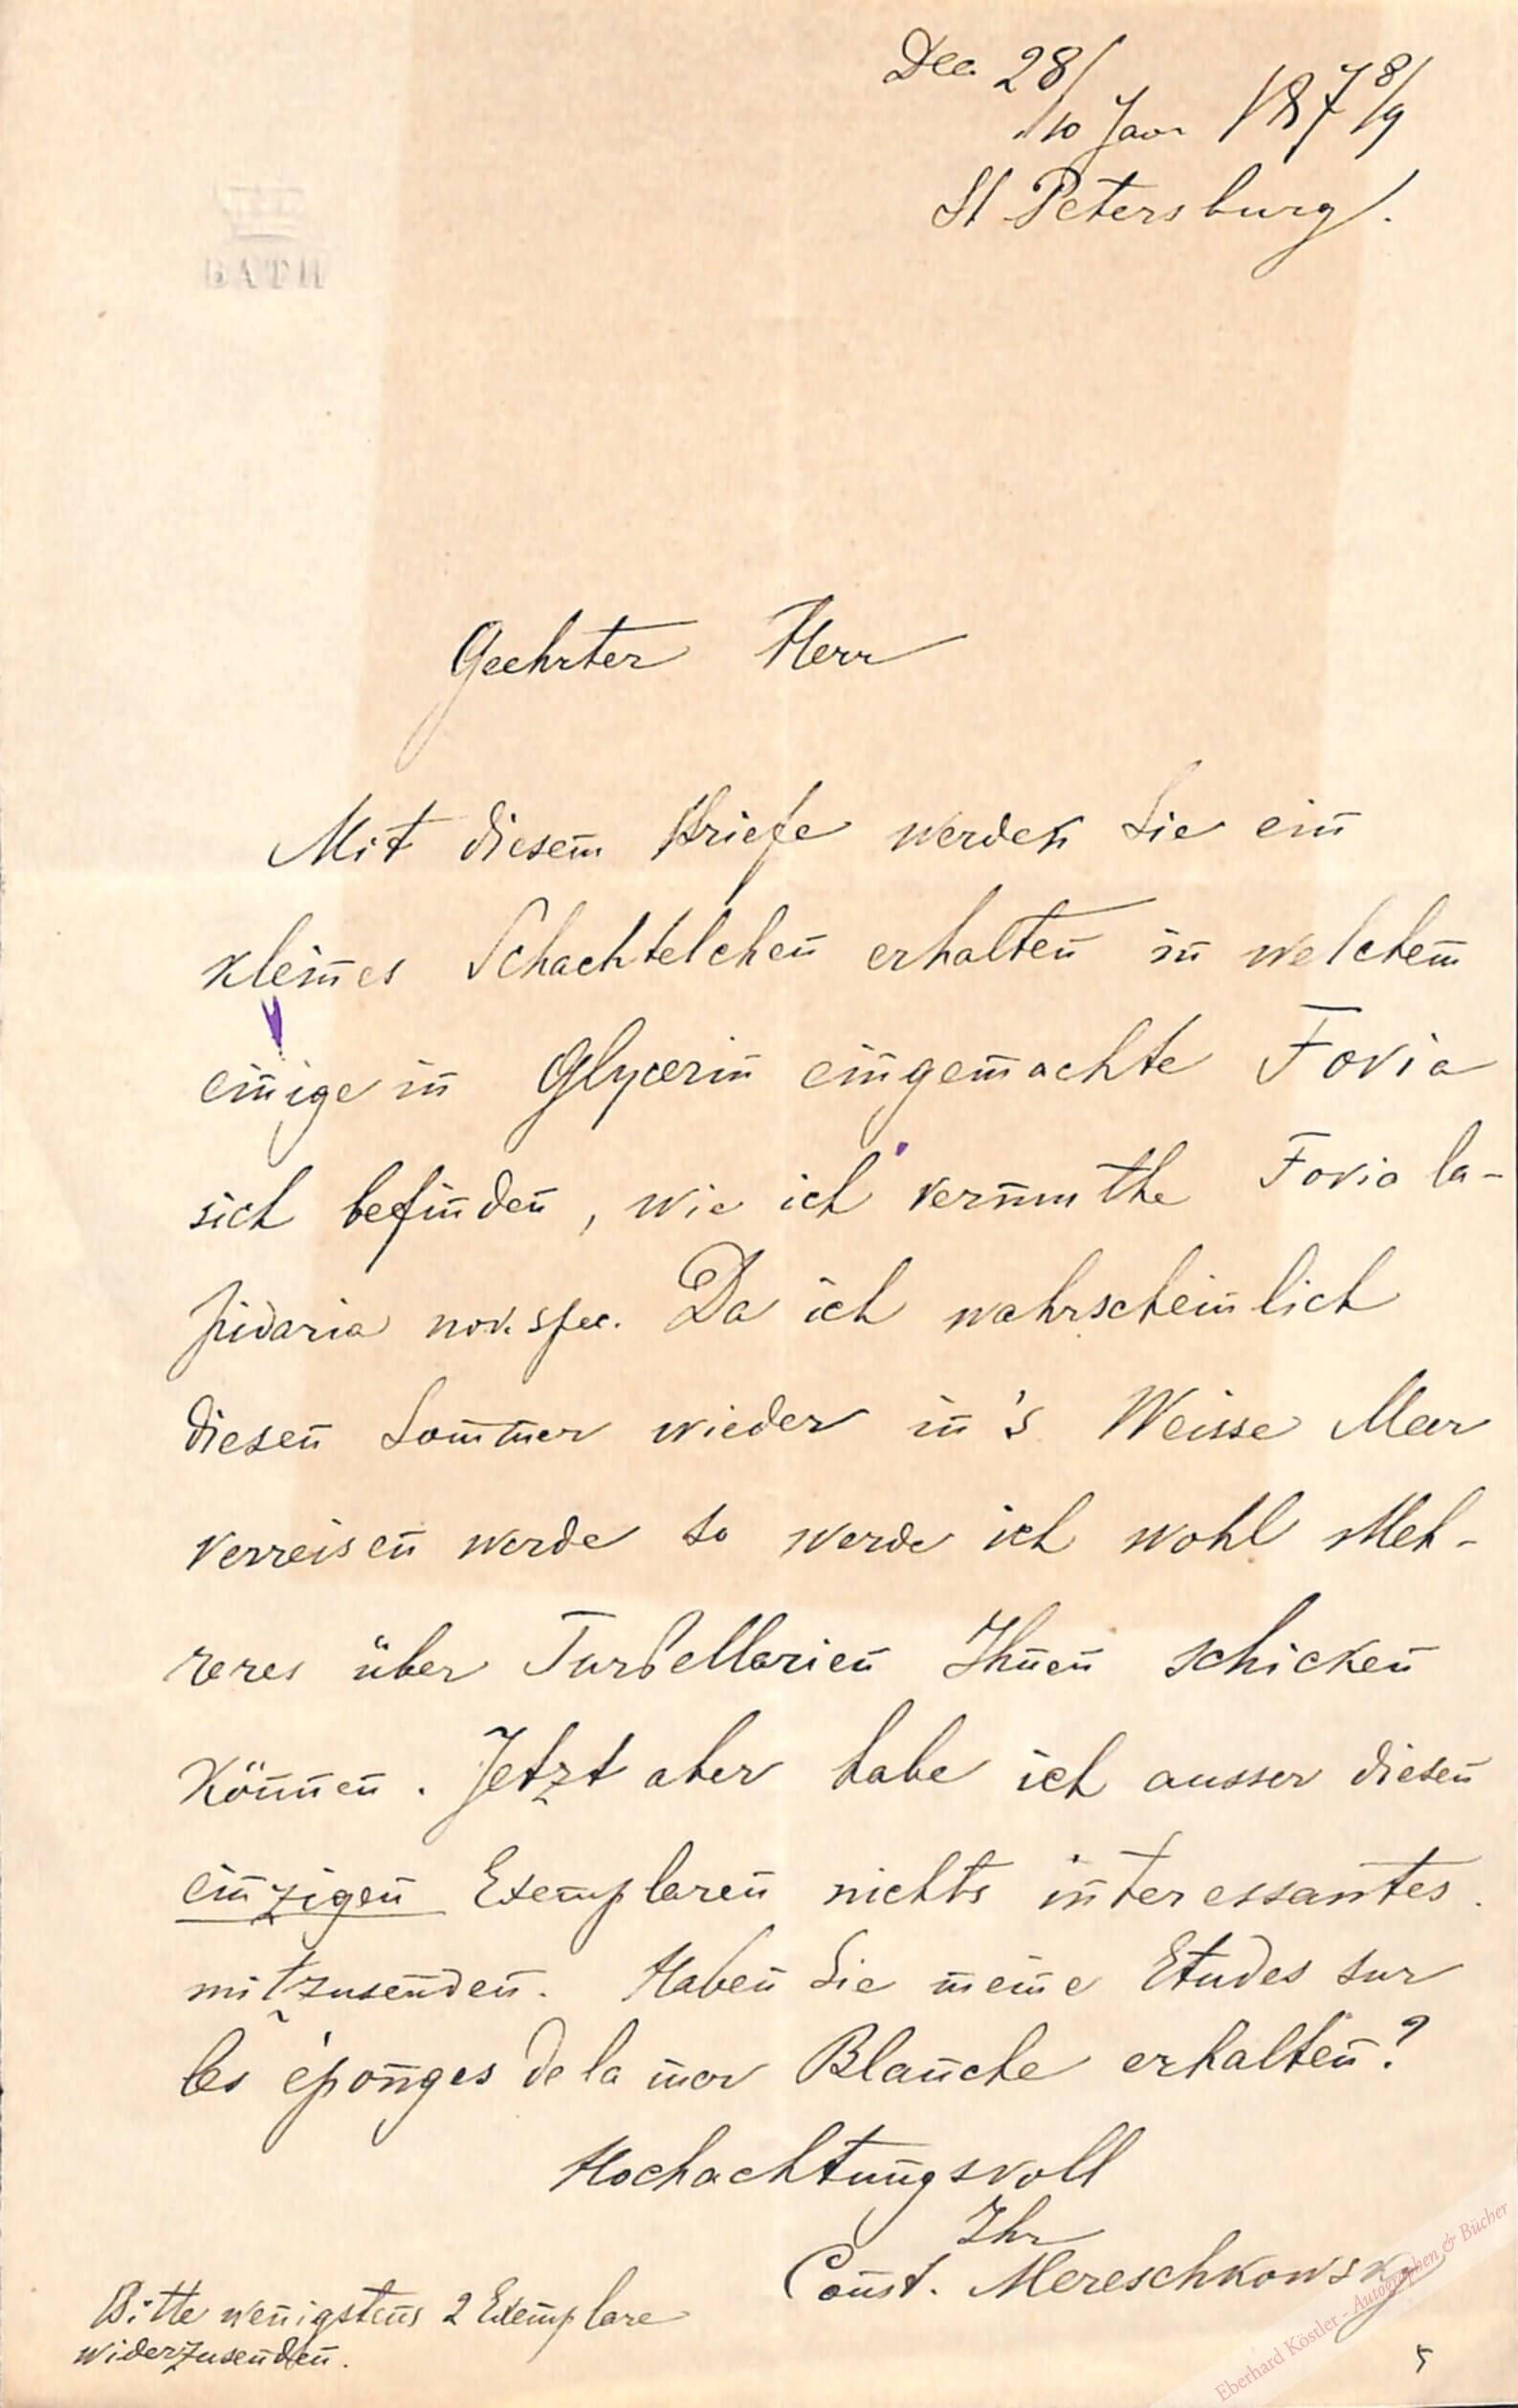 Dec 28/
/10 Jan 1878/9
St Petersburg.
BATH
Geehrter Herr
Mit diesem Briefe werden Sie ein
kleines Schachtelchen erhalten in welchem
einige in Glycerin eingemachte Fovia
sich befinden, wie ich vermuthe Fovia la-
pidaria nov. spec. Da ich wahrscheinlich
diesen Sommer wieder in's Weisse Meer
verreisen werde so werde ich wohl Meh-
reres über Turbellarien Ihnen schicken
können. Jetzt aber habe ich ausser diesen
einzigen Exemplaren nichts interessantes
mitzusenden. Haben Sie meine Etudes sur
les éponges de la mer Blanche erhalten?
Hochachtungsvoll
Ihr
Const. Mereschkowsky
Bitte wenigstens 2 Exemplare
widerzusenden.
5
Eberhard Köstler - Autographen & Bücher